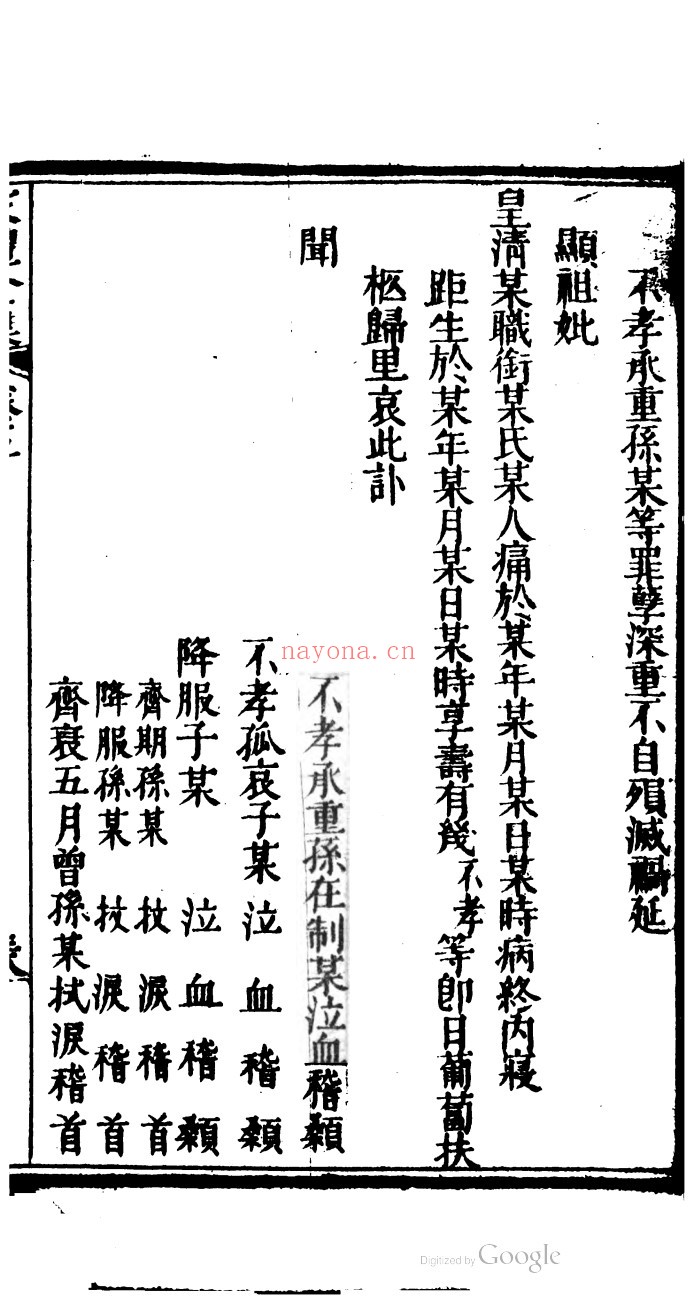 不孝承重孫某等罪孽深重不自殞滅禍延
顯祖妣
皇清某職銜某氏某人痛於某年某月某日某時病終內寢
距生於某年某月某日某時享壽有幾不孝等即日葡匐扶
柩歸里哀此訃
聞
不孝承重孫在制某泣血稽顙
不孝孤哀子某泣血稽顙
降服子某泣血稽顙
齊期孫某抆淚稽首
降服孫某抆淚稽首
齊衰五月曾孫某拭淚稽首
nayona.cn
Digitized by Google